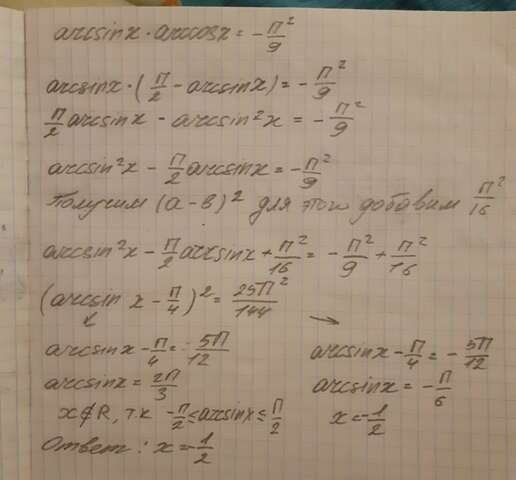 arcsinx · arccosx = - П²/9
arcsinx · (П/2 - arcsinx) = - П²/9
П/2 arcsinx - arcsin²x = - П²/9
arcsin²x - П/2 arcsinx = - П²/9
Получим (а-в)² для этого добавим П²/16
arcsin²x - П/2 arcsinx + П²/16 = - П²/9 + П²/16
(arcsin x - П/4)² = 25П²/144
arcsinx - П/4 = 5П/12
arcsinx = 2П/3
x∉R, т.к -П/2 ≤ arcsinx ≤ П/2
arcsinx - П/4 = - 5П/12
arcsinx = - П/6
x = -1/2
Ответ: x = -1/2